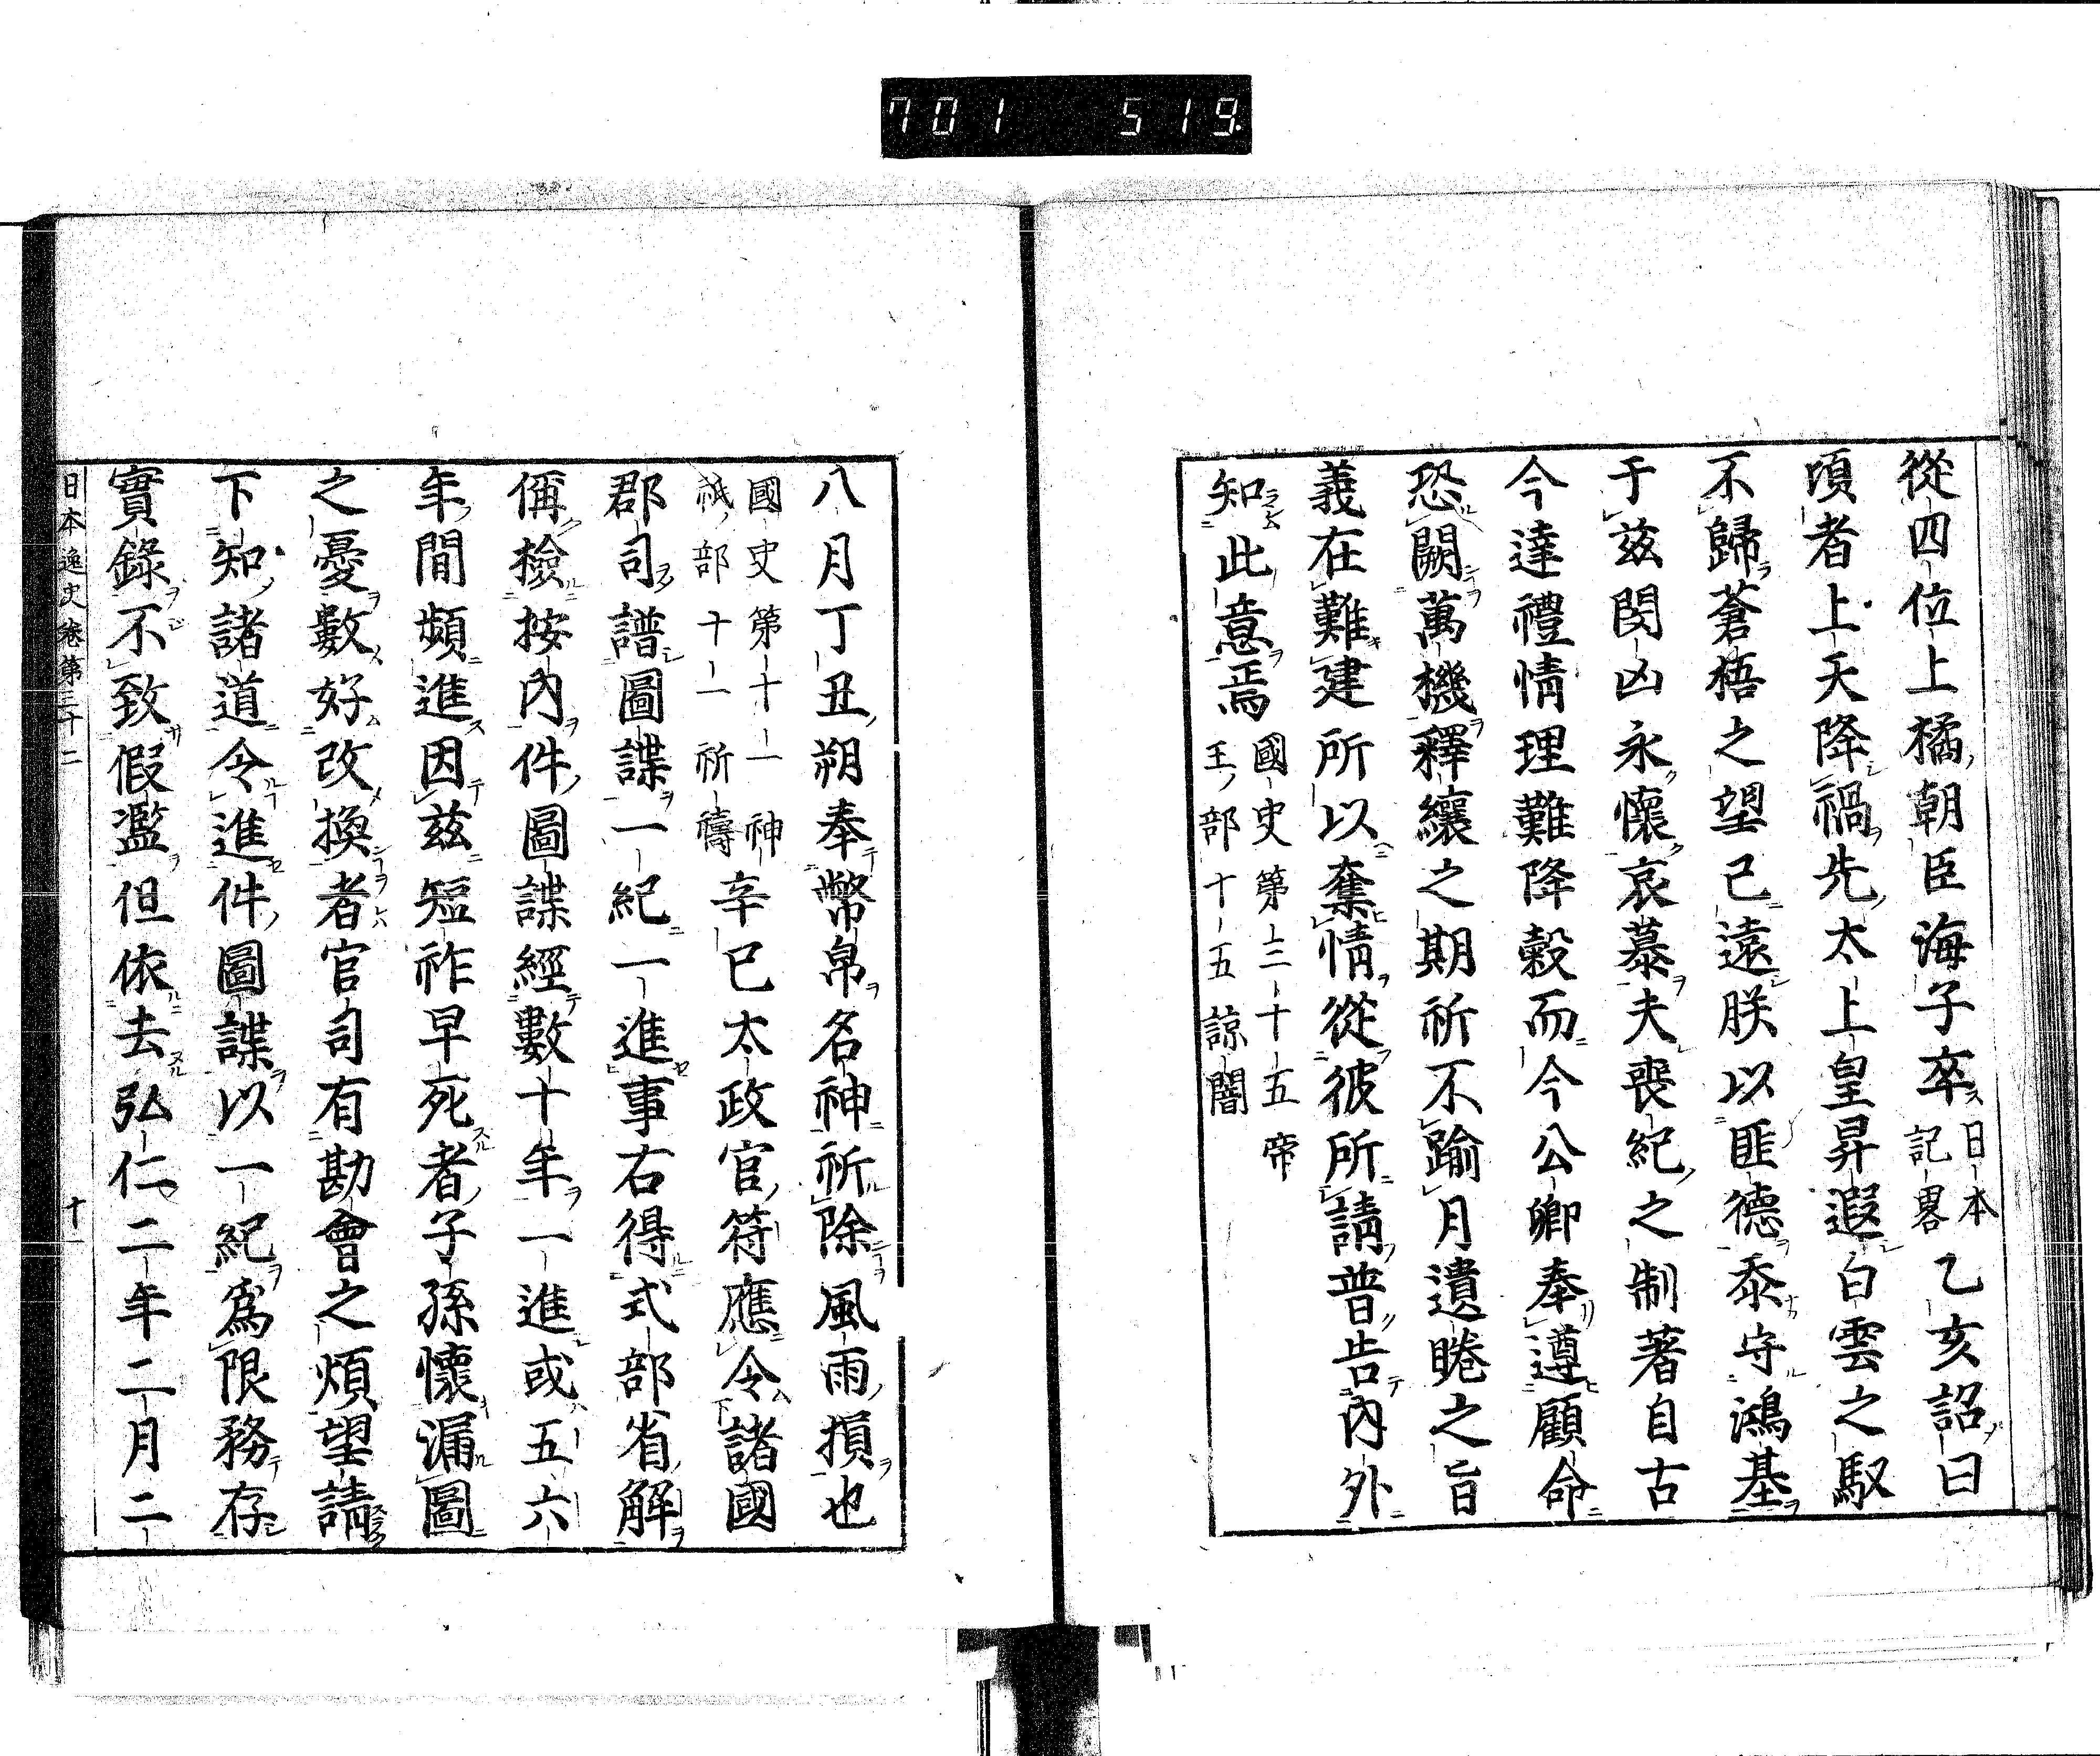 701 519.
從四位上橘朝臣海子卒日本記畧乙亥詔曰
頃者上天降禍先太上皇昇遐白雲之馭
不歸蒼梧之望已遠朕以匪德忝守鴻基
于茲閔凶永懷哀慕夫喪紀之制著自古
今達禮情理難降縠而今公卿奉遵顧命
恐闕萬機釋纕之期祈不踰月遺睠之旨
義在難建所以奪情從彼所請普告內外
知此意焉國史第三十五帝王部十五諒闇
八月丁丑朔奉幣帛名神祈除風雨損也
國史第十一神祇部十一祈禱辛巳太政官符應令諸國
郡司譜圖諜一紀一進事右得式部省解
偁檢按內件圖諜經數十年一進或五六
年間頻進因茲短祚早死者子孫懷漏圖
之憂數好改換者官司有勘會之煩望請
下知諸道令進件圖諜以一紀爲限務存
實錄不致假濫但依去弘仁二年二月二
日本逸史卷第三十二 十一